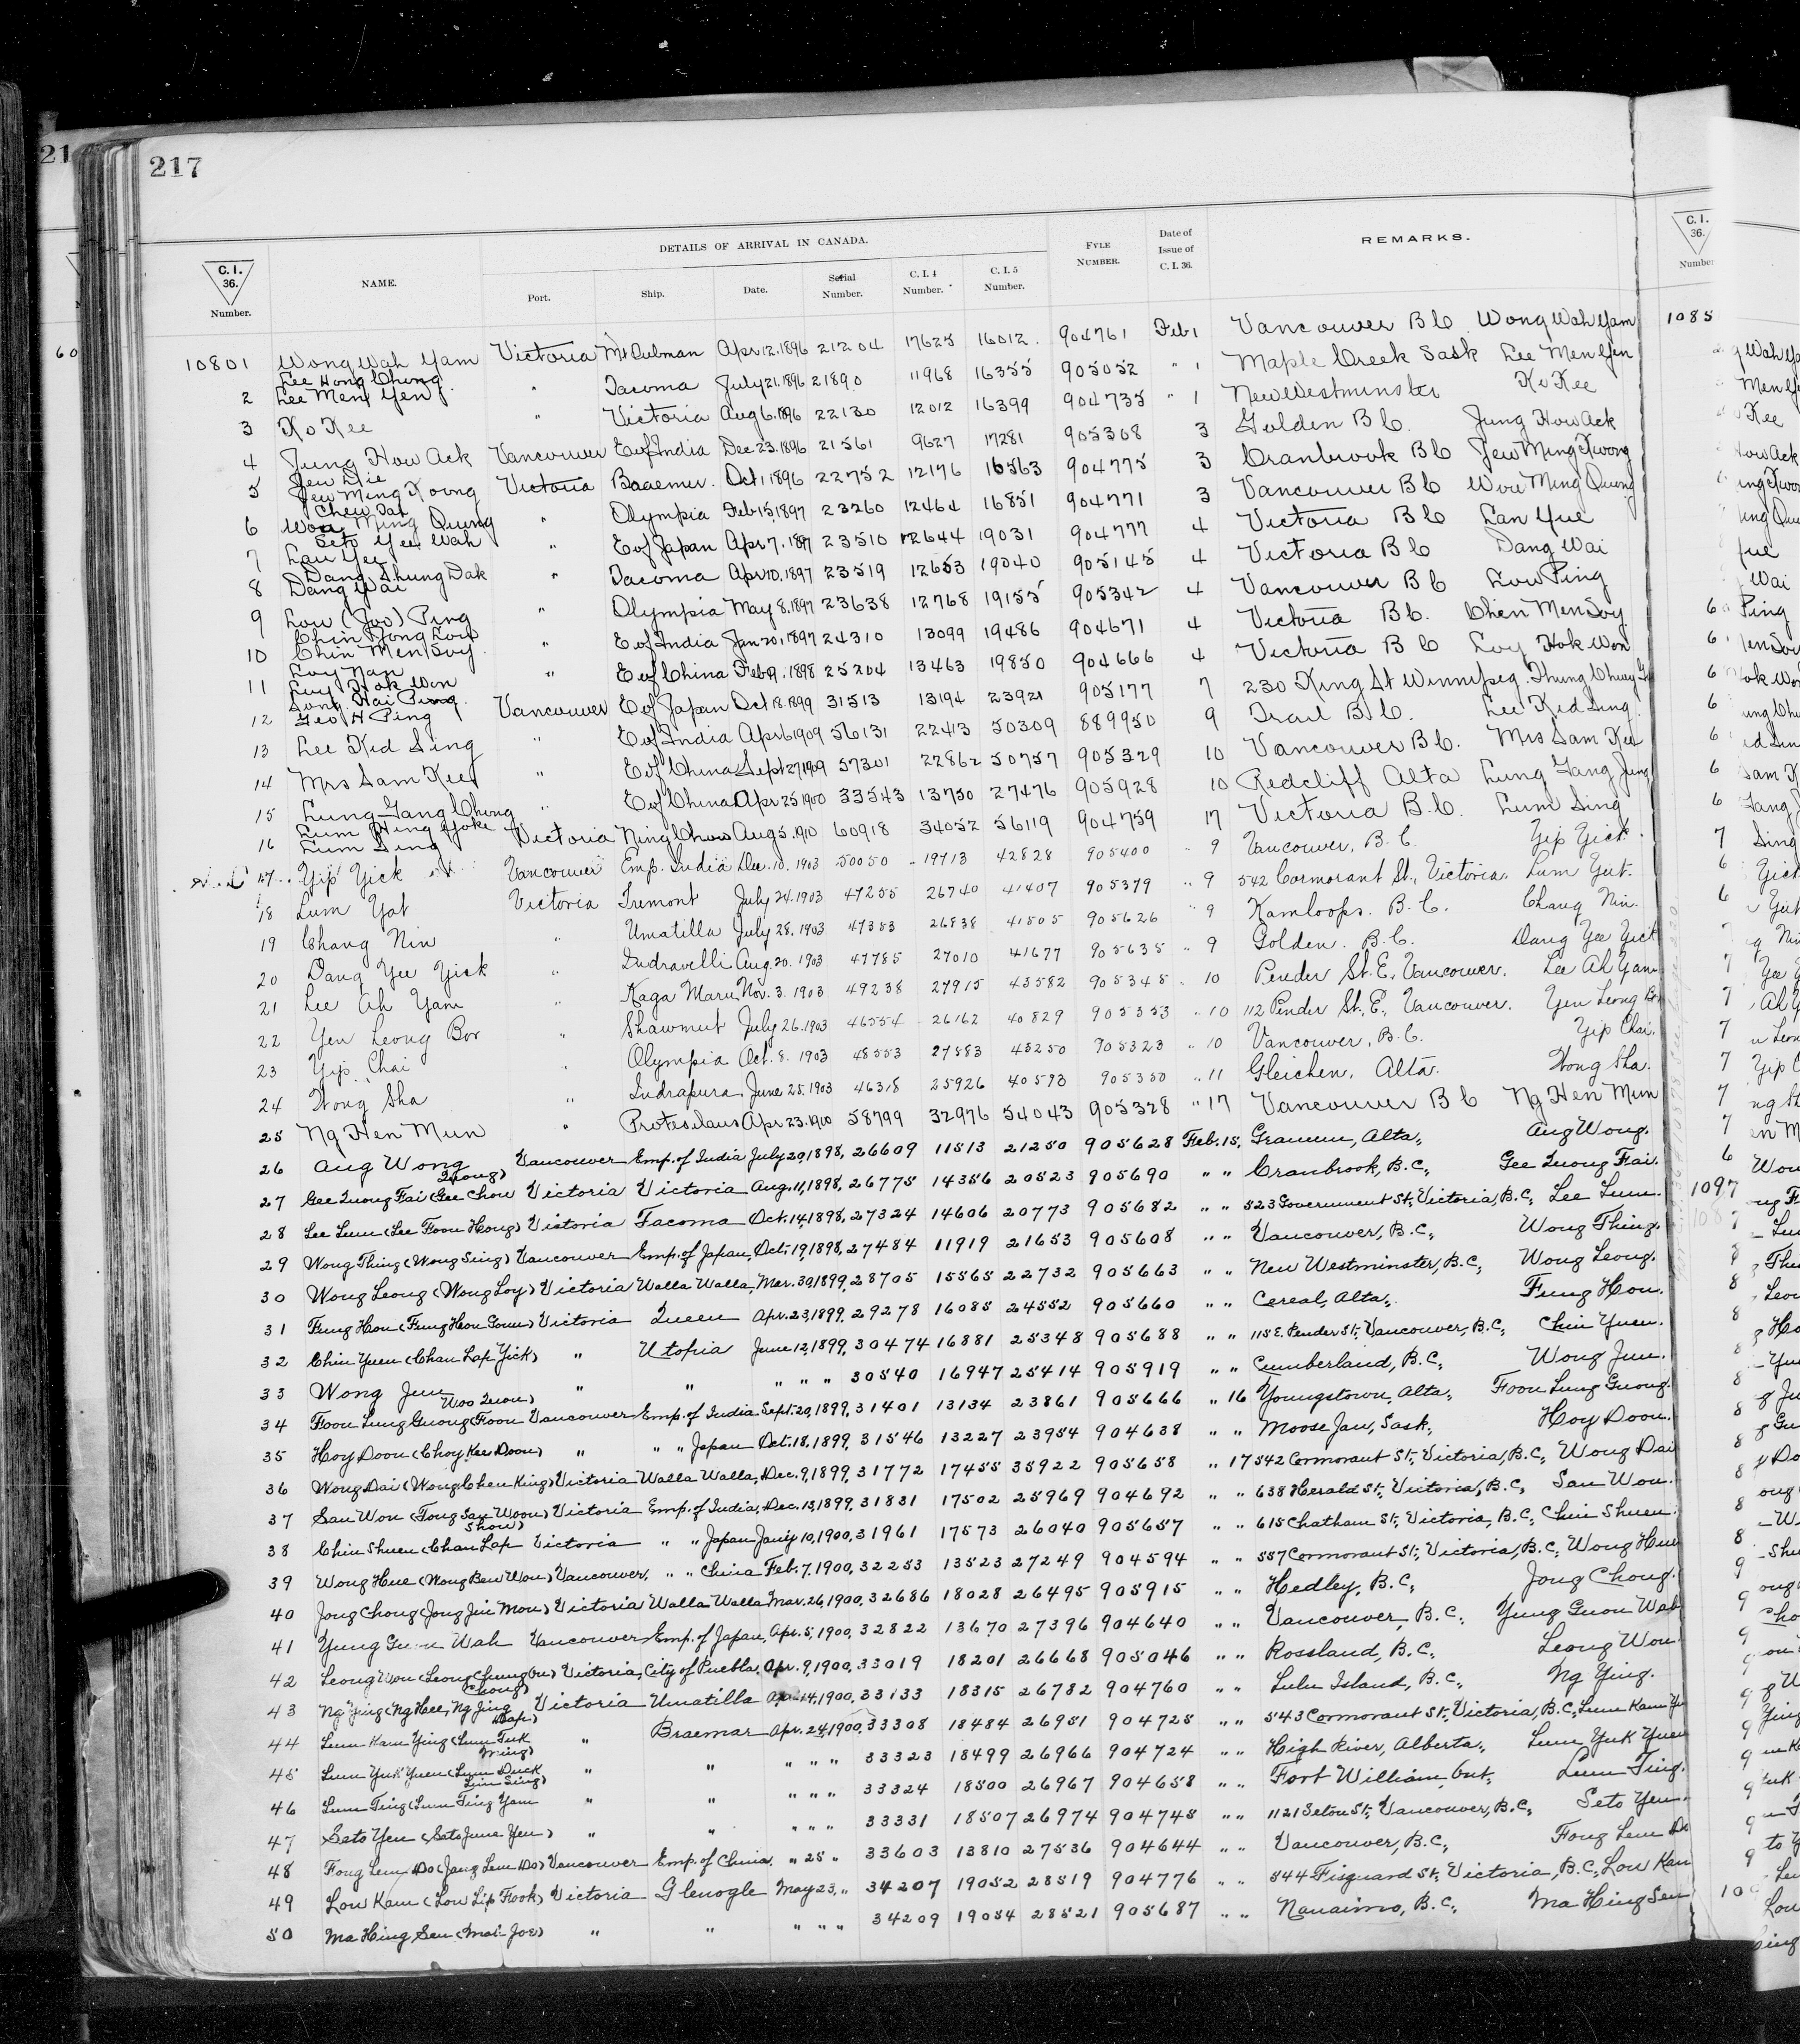 21
217
DETAILS OF ARRIVAL IN CANADA.
C. I. 36. Number. NAME. Port. Ship. Date. Serial Number. C. I. 4 Number. C. I. 5 Number. FYLE NUMBER. Date of Issue of C. I. 36. REMARKS. C. I. 36. Number
10801 Wong Wah Yam Victoria Apr 12. 1896 21204 17625 16012 904761 Feb 1 Vancouver B C Wong Wah Yam 1085
Lee Hong Chong
2 Lee Men Yen " Tacoma July 21. 1896 21890 11968 16355 905052 " 1 Maple Creek Sask Lee Men Yen
3 Ko Kee " Victoria Aug 6. 1896 22130 12012 16399 904735 " 1 New Westminster Ko Kee
4 Jung How Ack Vancouver E of India Dec 23. 1896 21561 9627 17281 905308 3 Golden B C. Jung How Ack
Jew Die
5 Jew Ming Koong Victoria Oct 1 1896 22752 12176 16563 904775 3 Cranbrook B C Jew Ming Kwong
Chew Tat
6 Wou Ming Quong " Olympia Feb 15, 1897 23260 12464 16851 904771 3 Vancouver B C Wou Ming Quong
Seto Yee Wah
7 Lau Yee " E of Japan Apr 7. 1897 23510 12644 19031 904777 4 Victoria B C Lan Yue
Dang Shung Dak
8 Dang Wai " Tacoma Apr 10. 1897 23519 12653 19040 905145 4 Victoria B C Dang Wai
9 Low (Joo) Ping " Olympia May 8. 1897 23638 12768 19155 905342 4 Vancouver B C Low Ping
Chin Kong Low
10 Chin Men Soy " E of India Jan 20, 1897 24310 13099 19486 904671 4 Victoria B C. Chen Men Soy
Loy Nan
11 Loy Hok Won " E of China Feb 9, 1898 25204 13463 19850 904666 4 Victoria B C Loy Hok Won
Song Hai Ping
12 Geo H Ping Vancouver E of Japan Oct 18. 1899 31513 13194 23921 905177 7 230 King St Winnipeg
13 Lee Kid Sing " E of India Apr 6 1909 56131 22413 50309 889950 9 Trail B. C. Lee Kid Sing
14 Mrs Sam Kee " E of China Sept 27, 1909 57301 22862 50757 905329 10 Vancouver B C. Mrs Sam Kee
15 Lung Gang Chong " E of China Apr 25 1900 33543 13750 27476 905928 10 Redcliff Alta Lung Gang Jung
Lum Hing Yoke
16 Lum Sing Victoria Ning Chow Aug 5. 1910 60918 34052 56119 904759 17 Victoria B. C. Lum Sing
17 Yip Yick Vancouver Emp. India Dec. 10. 1903 50050 19713 42828 905400 " 9 Vancouver, B. C. Yip Yick
18 Lum Yat Victoria Tremont July 24. 1903 47255 26740 41407 905379 " 9 542 Cormorant St., Victoria. Lum Yut.
19 Chang Nin " Umatilla July 28. 1903 47353 26838 41505 905626 " 9 Kamloops. B. C. Chang Nin.
20 Dang Yee Yick " Indravelli Aug. 20. 1903 47785 27010 41677 905635 " 9 Golden. B. C. Dang Yee Yick
21 Lee Ah Yam " Kaga Maru Nov. 3. 1903 49238 27915 43582 905345 " 10 Pender St. E., Vancouver. Lee Ah Yam
22 Yen Leong Bor " Shawmut July 26. 1903 46554 26162 40829 905353 " 10 112 Pender St., E., Vancouver. Yen Leong Bor
23 Yip Chai " Olympia Oct. 8. 1903 48553 27583 43250 905323 " 10 Vancouver, B. C. Yip Chai.
24 Wong Sha " Indrapura June 25. 1903 46318 25926 40593 905350 " 11 Gleichen, Alta. Wong Sha.
25 Ng Hen Mun " Protesilaus Apr 23. 1910 58799 32976 54043 905328 " 17 Vancouver B C Ng Hen Mun
26 Aug Wong Vancouver Emp. of India July 20, 1898, 26609 11513 21250 905628 Feb. 15, Granum, Alta., Aug Wong.
27 Gee Quong Fai (Gee Chou Quong) Victoria Victoria Aug. 11, 1898, 26775 14356 20523 905690 " " Cranbrook, B.C., Gee Quong Fai.
28 Lee Lum (Lee Foon Hong) Victoria Tacoma Oct. 14, 1898, 27324 14606 20773 905682 " " 523 Government St., Victoria, B.C., Lee Lum. 1097
29 Wong Thing (Wong Sing) Vancouver Emp. of Japan, Oct. 19, 1898, 27484 11919 21653 905608 " " Vancouver, B.C., Wong Thing.
30 Wong Leong (Wong Loy) Victoria Walla Walla, Mar. 30, 1899, 28705 15565 22732 905663 " " New Westminster, B.C., Wong Leong.
31 Fung Hon (Fung Hon Goun) Victoria Queen Apr. 23, 1899, 29278 16085 24552 905660 " " Cereal, Alta., Fung Hon.
32 Chin Yuen (Chan Lap Yick) " Utopia June 12, 1899, 30474 16881 25348 905688 " " 115 E. Pender St., Vancouver, B.C., Chin Yuen.
33 Wong Jun " " " " " 30540 16947 25414 905919 " " Cumberland, B.C., Wong Jun.
34 Foon Lung Guong (Foon Woo Quon) Vancouver Emp. of India Sept. 20, 1899, 31401 13134 23861 905666 " 16 Youngstown, Alta., Foon Lung Guong.
35 Hoy Doon (Choy Kee Doon) " " " Japan Oct. 18, 1899, 31546 13227 23954 904638 " " Moose Jaw, Sask., Hoy Doon.
36 Wong Dai (Wong Chen King) Victoria Walla Walla, Dec. 9, 1899, 31772 17455 35922 905658 " 17 542 Cormorant St., Victoria, B.C., Wong Dai
37 San Won (Fong San Woon) Victoria Emp. of India, Dec. 13, 1899, 31831 17502 25969 904692 " " 638 Herald St., Victoria, B.C., San Won.
38 Chin Shuen (Chan Lap Show) Victoria " " Japan Jan'y 10, 1900, 31961 17573 26040 905657 " " 615 Chatham St., Victoria, B.C., Chin Shuen.
39 Wong Hue (Wong Ben Won) Vancouver, " " China Feb. 7, 1900, 32253 13523 27249 904594 " " 557 Cormorant St., Victoria, B.C., Wong Hue
40 Jong Chong (Jong Jin Mon) Victoria Walla Walla Mar. 26, 1900, 32686 18028 26495 905915 " " Hedley, B.C., Jong Chong.
41 Yung Guon Wah Vancouver Emp. of Japan, Apr. 5, 1900, 32822 13670 27396 904640 " " Vancouver, B.C., Yung Guon Wah
42 Leong Won (Leong Chung On) Victoria, City of Puebla, Apr. 9, 1900, 33019 18201 26668 905046 " " Rossland, B.C., Leong Won
43 Ng Ying (Ng Hee, Ng Jing Chong) Victoria Umatilla Apr. 14, 1900, 33133 18315 26782 904760 " " Lulu Island, B.C., Ng Ying.
44 Lum Kam Ying (Lum Tuk Hap) " Braemar Apr. 24, 1900, 33308 18484 26951 904725 " " 543 Cormorant St., Victoria, B.C., Lum Kam Yin
45 Lum Yuk Yuen (Lum Duck Ming) " " " " " 33323 18499 26966 904724 " " High River, Alberta, Lum Yuk Yuen
46 Lum Ting (Lum Ting Yam Lim Sing) " " " " " 33324 18500 26967 904658 " " Fort William, Ont., Lum Ting.
47 Seto Yen (Seto June Yen) " " " " " 33331 18507 26974 904748 " " 1121 Seton St., Vancouver, B.C., Seto Yen.
48 Fong Lem Do (Jang Lem Do) Vancouver Emp. of China, " 25 " 33603 13810 27536 904644 " " Vancouver, B.C., Fong Lem Do
49 Low Kam (Low Lip Fook) Victoria Glenogle May 23, " 34207 19052 28519 904776 " " 544 Fisguard St., Victoria, B.C., Low Kam
50 Ma Hing Sen (Mai Joe) " " " " " 34209 19054 28521 905687 " " Nanaimo, B.C., Ma Hing Sen